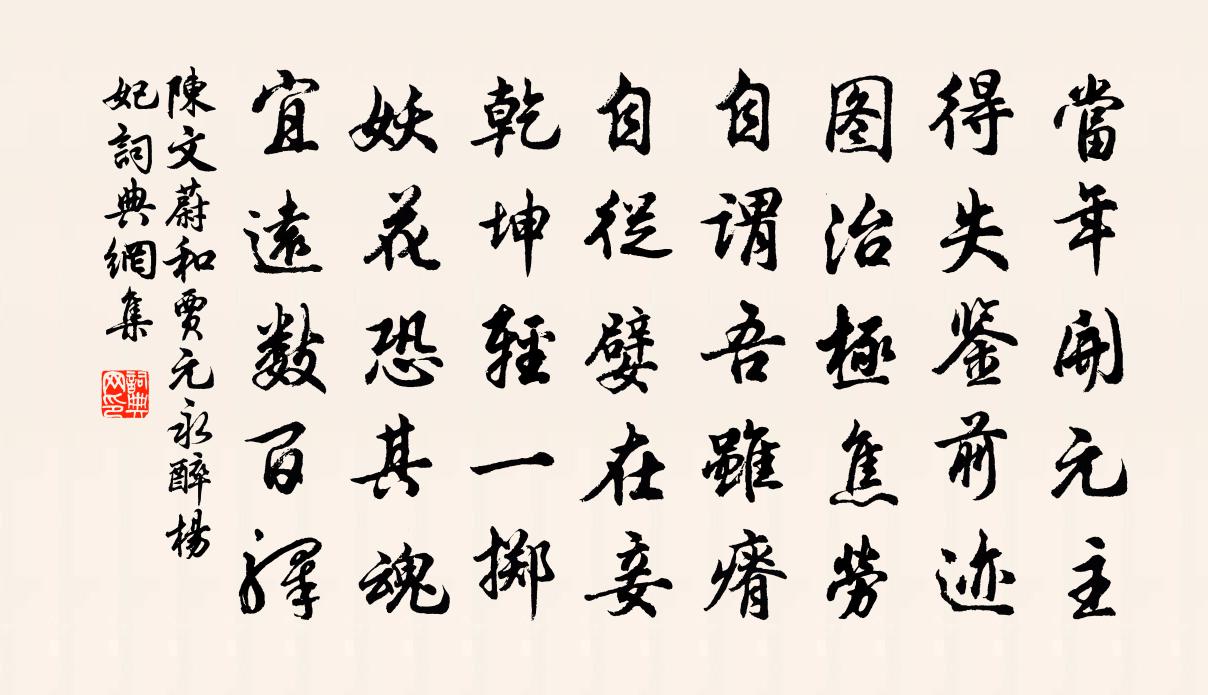 當年開元主
得失鉴前迹
图治極焦勞
自谓吾雖瘠
自從嬖在妾
乾坤輕一擲
妖花恐其魂
宜遠數百驛
陳文蔚和賈元永醉楊
妃詞典網集
詞典网印